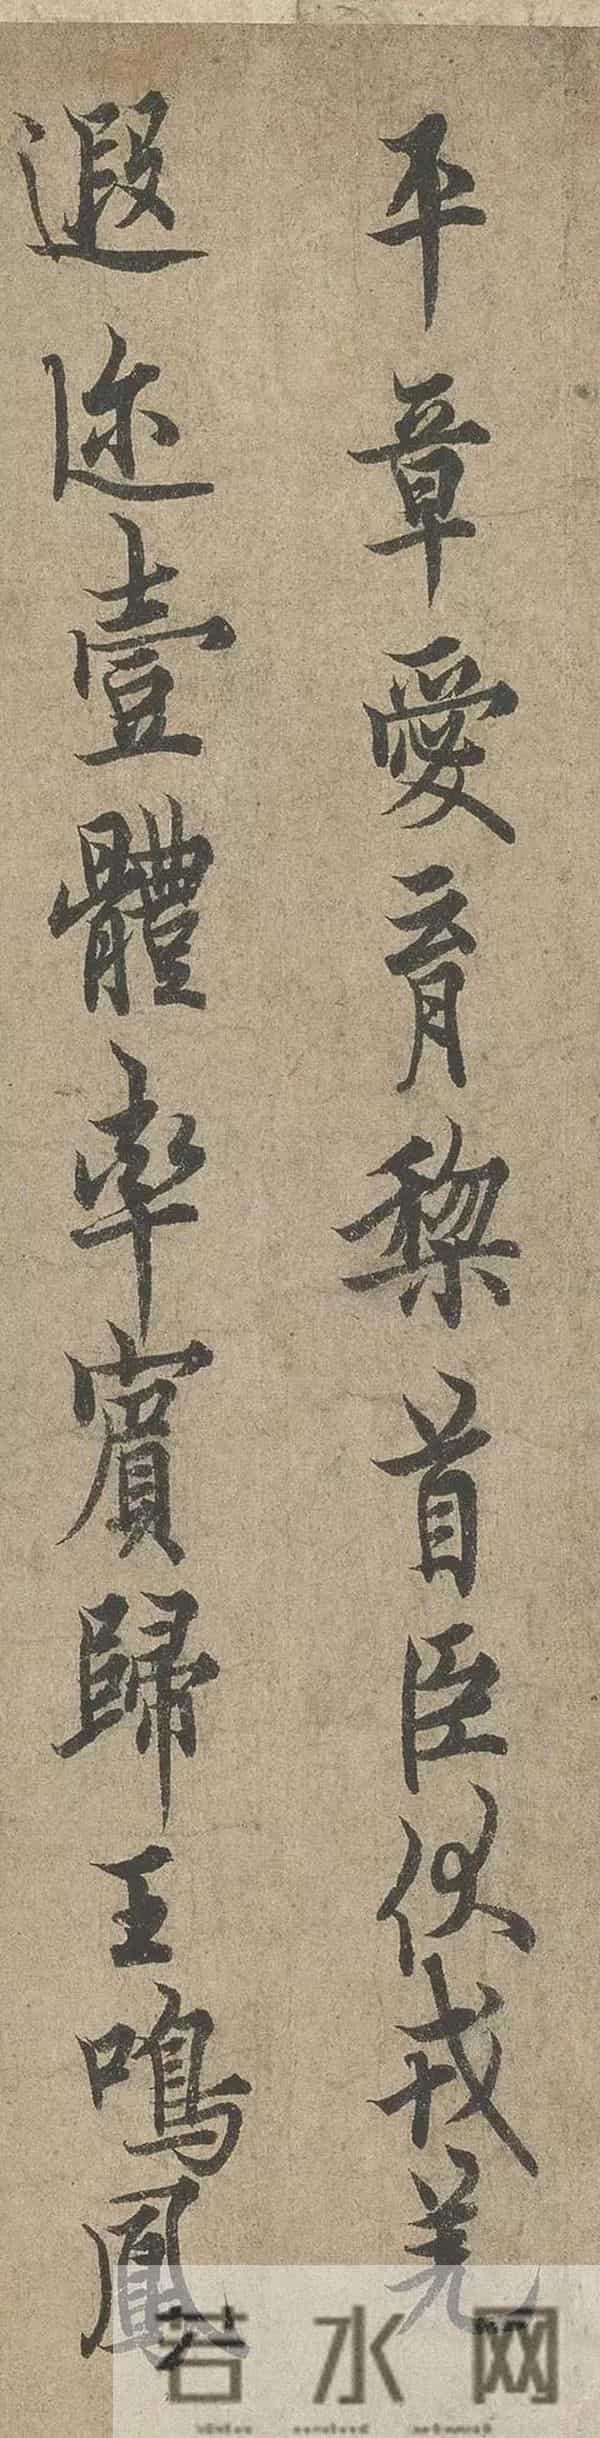 平章愛育黎首臣伏戎羌
遐迩壹體率賓歸王鳴鳳
若水网